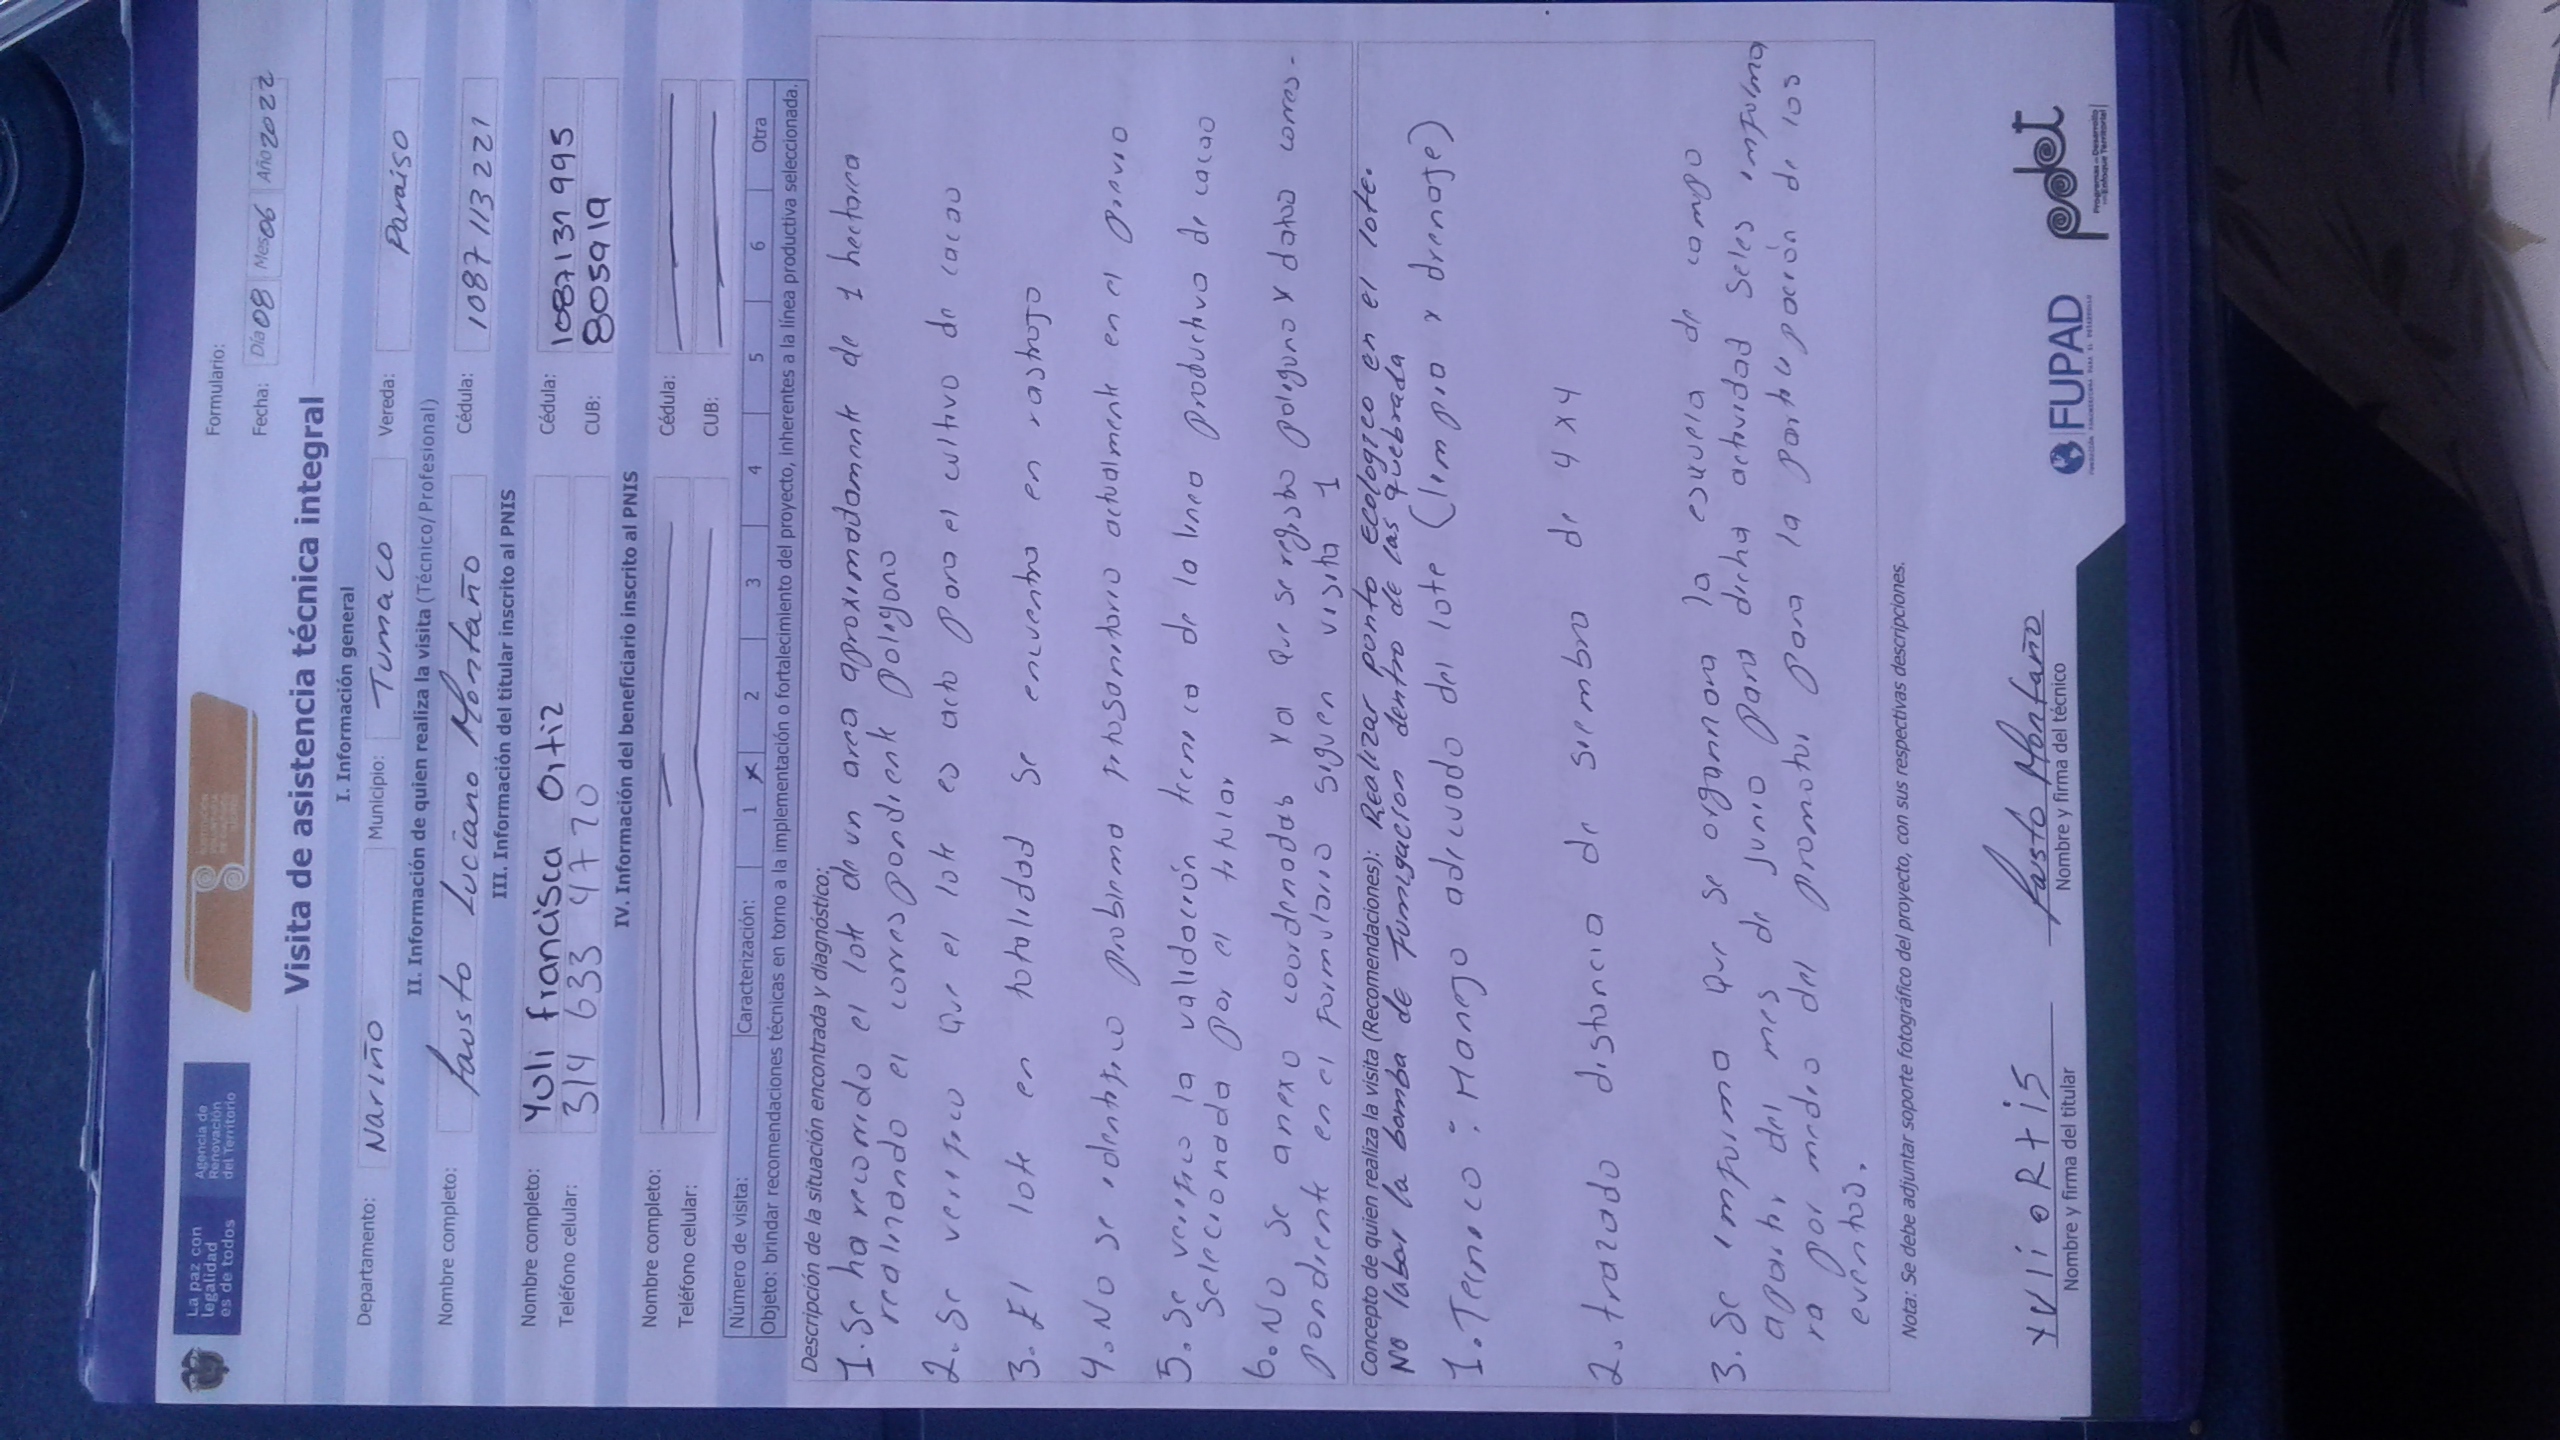 La paz con
legalidad
es de todos
Agencia de
Renovación
del Territorio
Formulario:
Fecha: Día 08 Mes 06 Año 2022
Visita de asistencia técnica integral
I. Información general
Departamento: Nariño Municipio: Tumaco Vereda: Paraiso
II. Información de quien realiza la visita (Técnico/Profesional)
Nombre completo: Fausto Luciano Montaño Cédula: 1087113221
III. Información del titular inscrito al PNIS
Nombre completo: Yuli francisca Ortiz Cédula: 1087131995
Teléfono celular: 314 633 4770 CUB: 805919
IV. Información del beneficiario inscrito al PNIS
Nombre completo: Cédula:
Teléfono celular: CUB:
Número de visita: Caracterización: 1 X 2 3 4 5 6 Otra
Objeto: brindar recomendaciones técnicas en torno a la implementación o fortalecimiento del proyecto, inherentes a la línea productiva seleccionada.
Descripción de la situación encontrada y diagnóstico:
1. Se ha recorrido el lote de un area aproximadamente de 1 hectarea
realinando el correspondiente poligono
2. Se verifico que el lote es acto para el cultivo de cacao
3. El lote en totalidad se encuentra en rastrojo
4. No se identifico problema fitosanitario actualmente en el previo
5. Se verifico la validación tecnica de la linea productiva de cacao
seleccionada por el titular
6. No se anexo coordenadas ya que se registro poligono y datos corres-
pondiente en el formulario siguen visita 1
Concepto de quien realiza la visita (Recomendaciones): Realizar ponto Ecologico en el lote.
No labar la bomba de fumigacion dentro de las quebrada
1. Tecnico: Manejo adecuado del lote (limpia y drenaje)
2. trazado distancia de siembra de 4 x 4
3. Se informa que se organnara la escuela de campo
apartir del mes de junio para dicha actividad seles informa
ra por medio del promotor para la participación de los
eventos.
Nota: Se debe adjuntar soporte fotográfico del proyecto, con sus respectivas descripciones.
YULi oRtiS
Nombre y firma del titular
Fausto Montaño
Nombre y firma del técnico
FUPAD
pdet
Programas de Desarrollo
con Enfoque Territorial